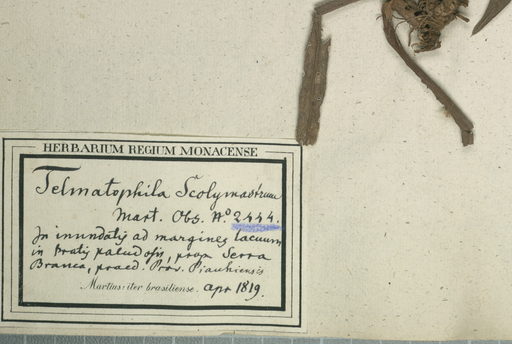 HERBARIUM REGIUM MONACENSE
Telmatophila Scolymastrum
Mart. Obs. No 2444.
In inundatis ad margines lacuum
in Pratis paludosis, prope Serra
Branca, praed. Prov. Piauhiensis
Martius: iter brasiliense. Apr 1819.